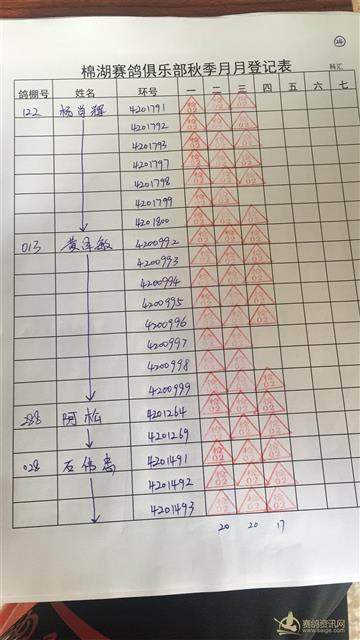 24
棉湖赛鸽俱乐部秋季月月登记表
科汇
鸽棚号 姓名 环号 一 二 三 四 五 六 七
122 杨肖辉 4201791
4201792
4201793
4201797
4201798
4201799
4201800
013 黄泽敏 4200992
4200993
4200994
4200995
4200996
4200997
4200998
4200999
288 阿松 4201264
4201269
028 石伟嵩 4201491
4201492
4201493
20 20 17
赛鸽资讯网
www.saige.com